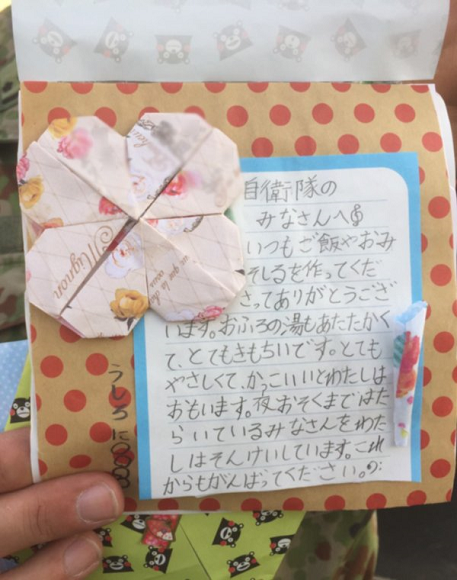 自衛隊の
みなさんへ
いつもご飯やおみ
そしるを作ってくだ
さってありがとうござ
います。おふろの湯もあたたかく
て、とてもきもちいです。とても
やさしくて、かっこいいとわたしは
おもいます。夜おそくまではた
らいているみなさんをわた
しはそんけいしています。これ
からもがんばってください。
うしろに
Mignon